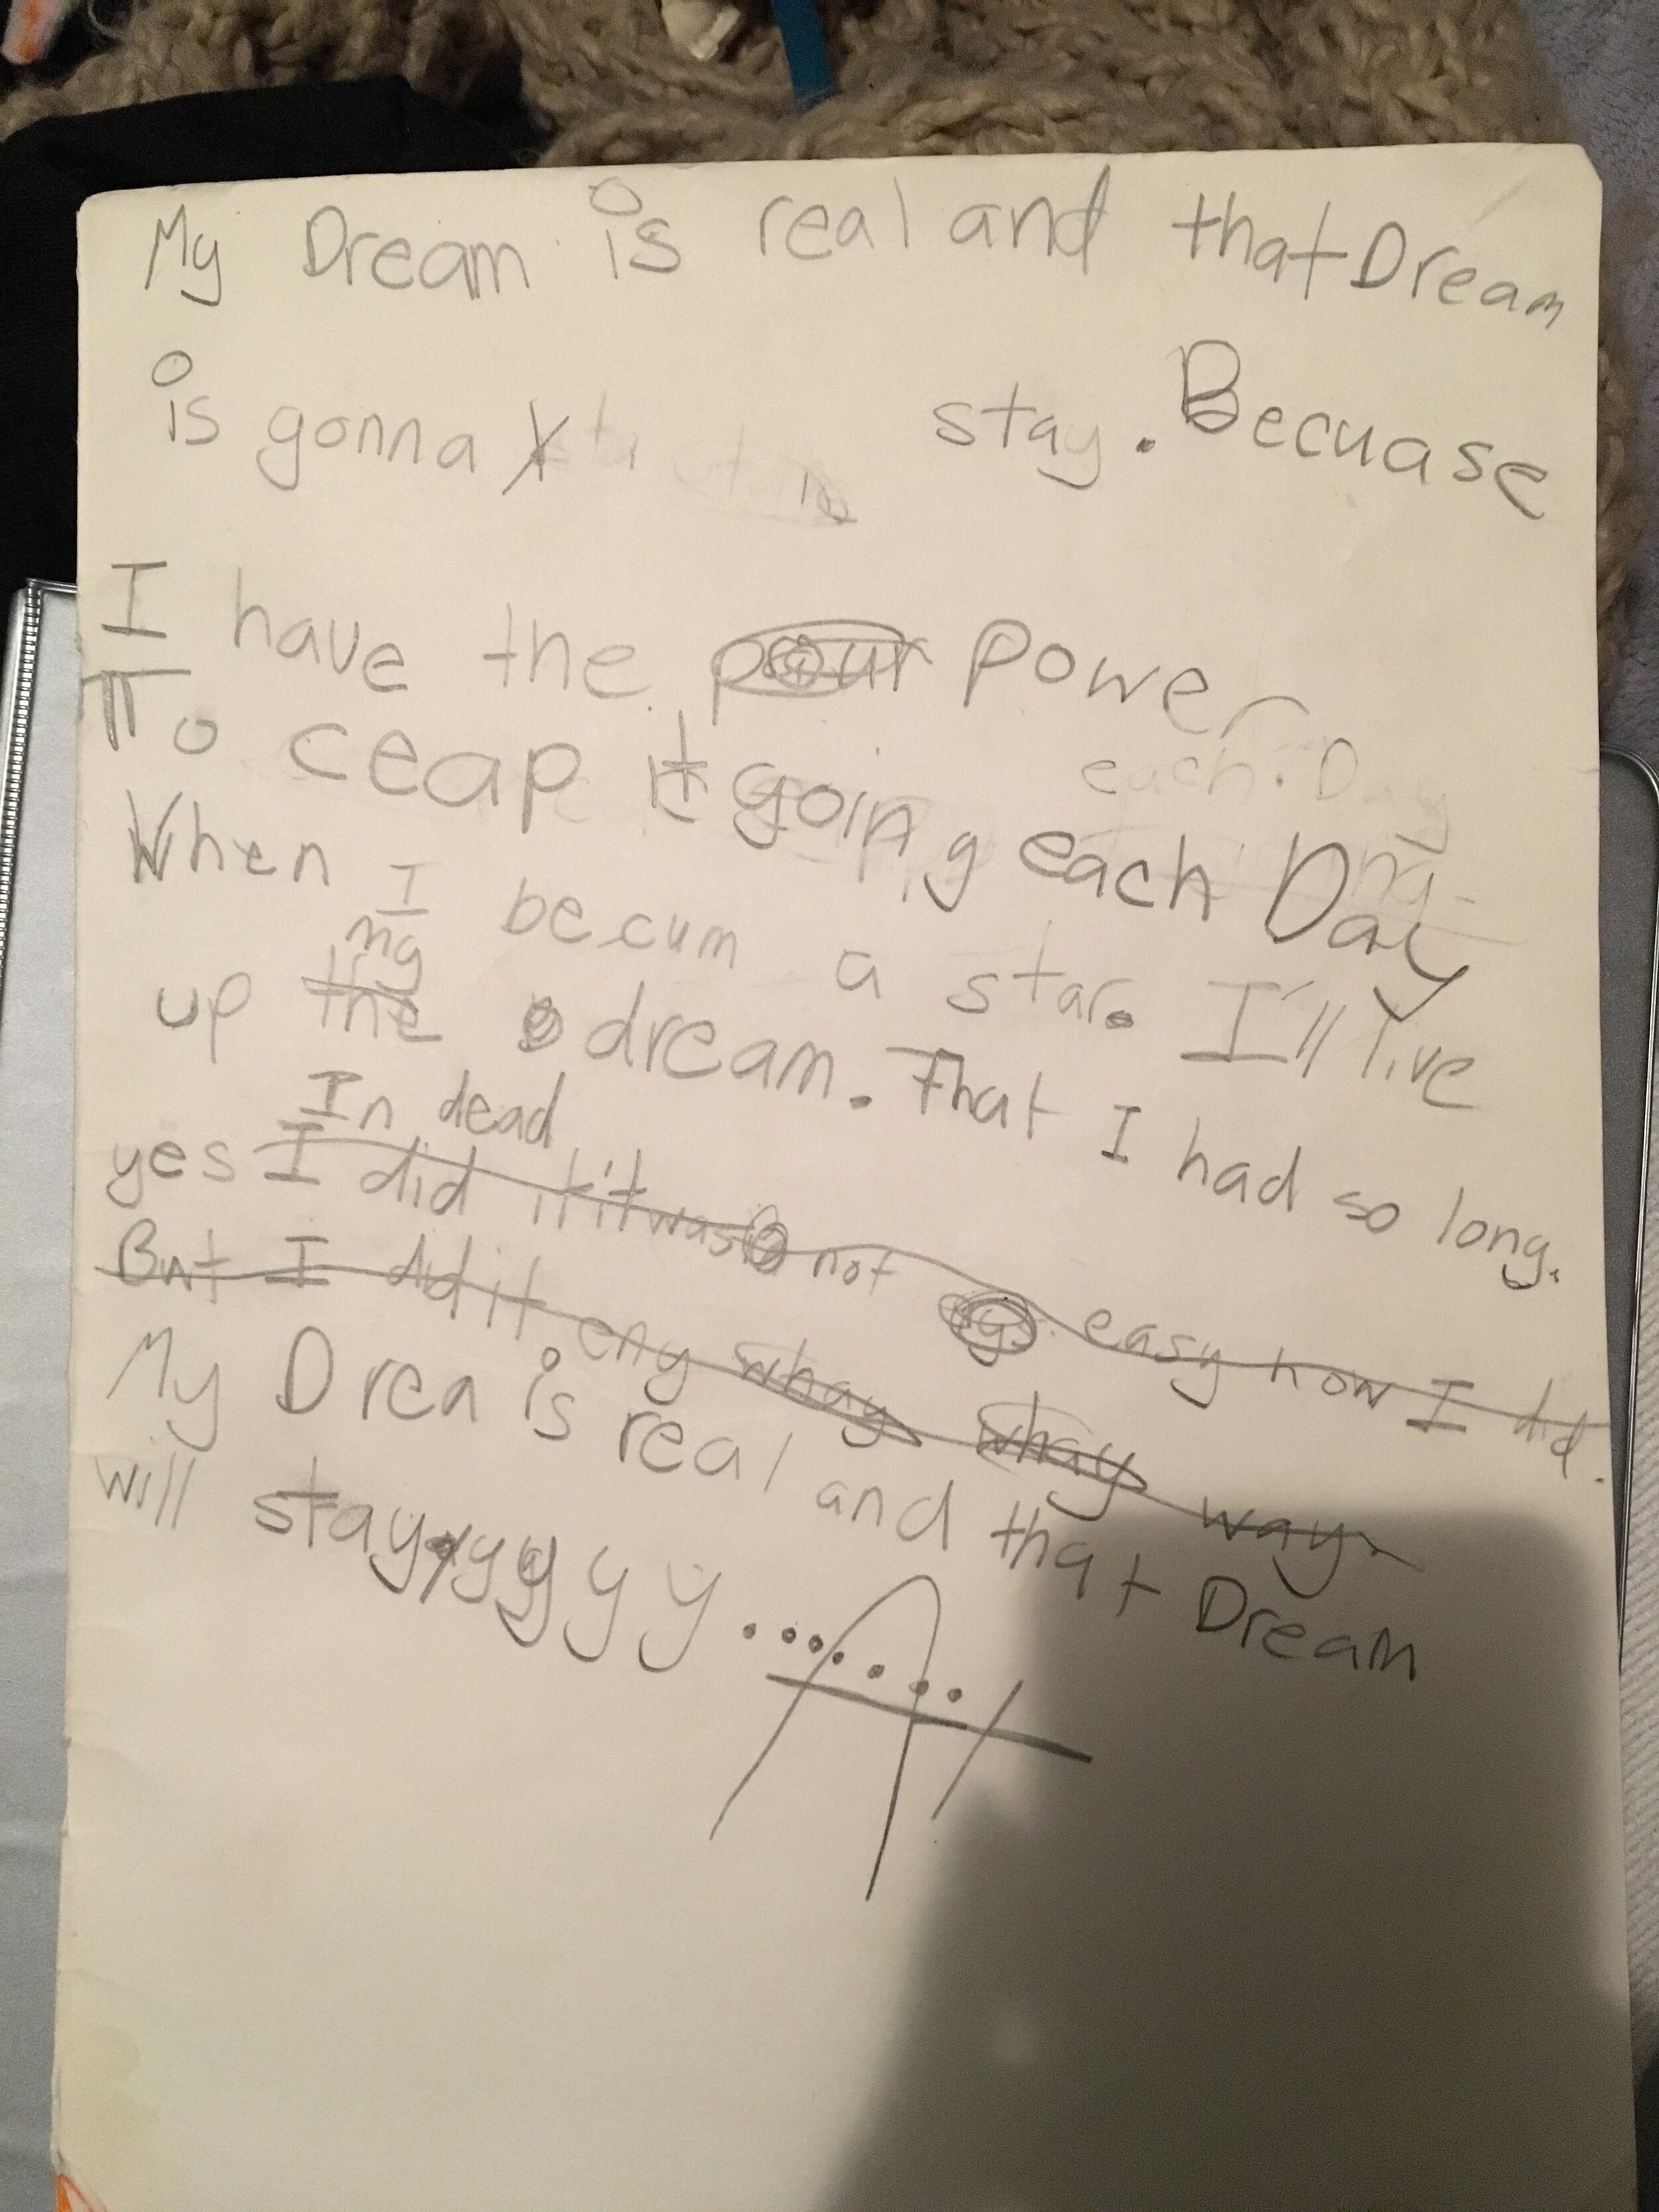 My Dream is real and that Dream
is gonna stay. Becuase
I have the pour power
each. Day
To ceap it going each Day
When I becum a star. I'll live
my
up the dream. That I had so long.
In dead
yes I did it it was not easy how I did.
But I did it eny whay whay way.
My Drea is real and that Dream
will stayyyyyyy........